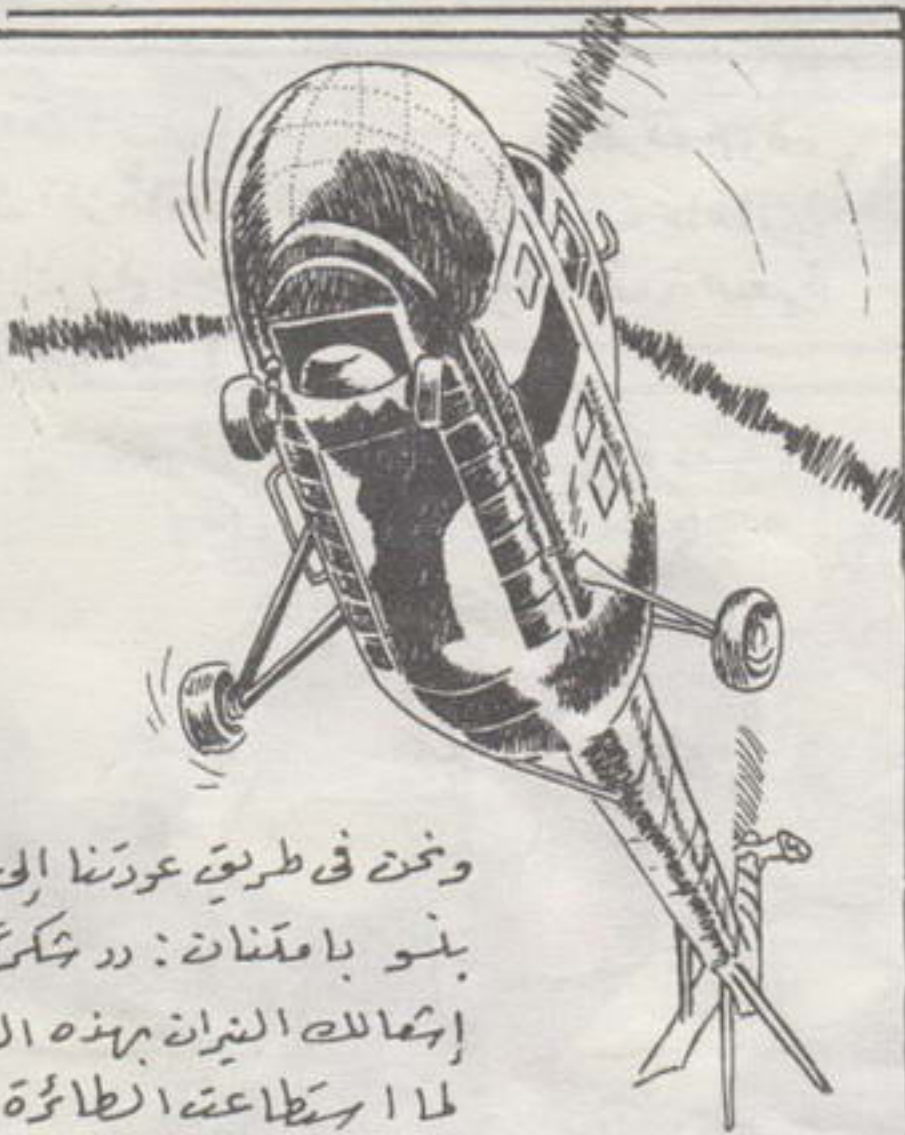 ونحن فى طريق عودتنا إلى
بامتنان : « شكرً
إشعالك النيران بهذه ال
لما استطاعت الطائرة